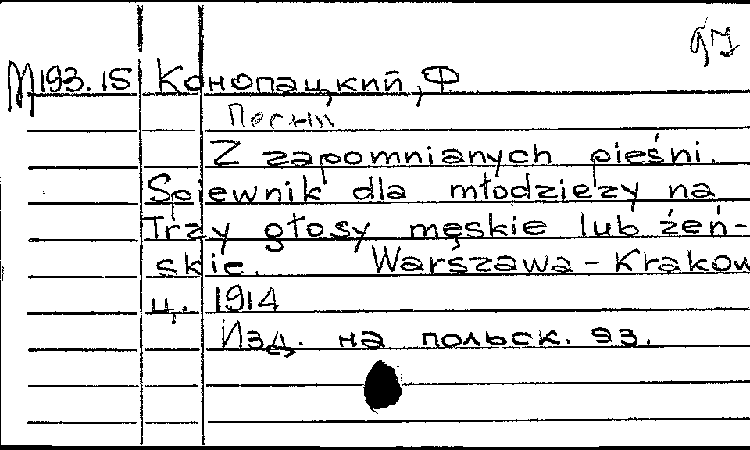 М193.15 Конопацкий, Ф
Песни
Z zapomnianych pieśni.
Spiewnik dla młodzieży na
Trzy głosy męskie lub żeń-
skie. Warszawa - Krakow
ц. 1914
Изд. на польск. яз.